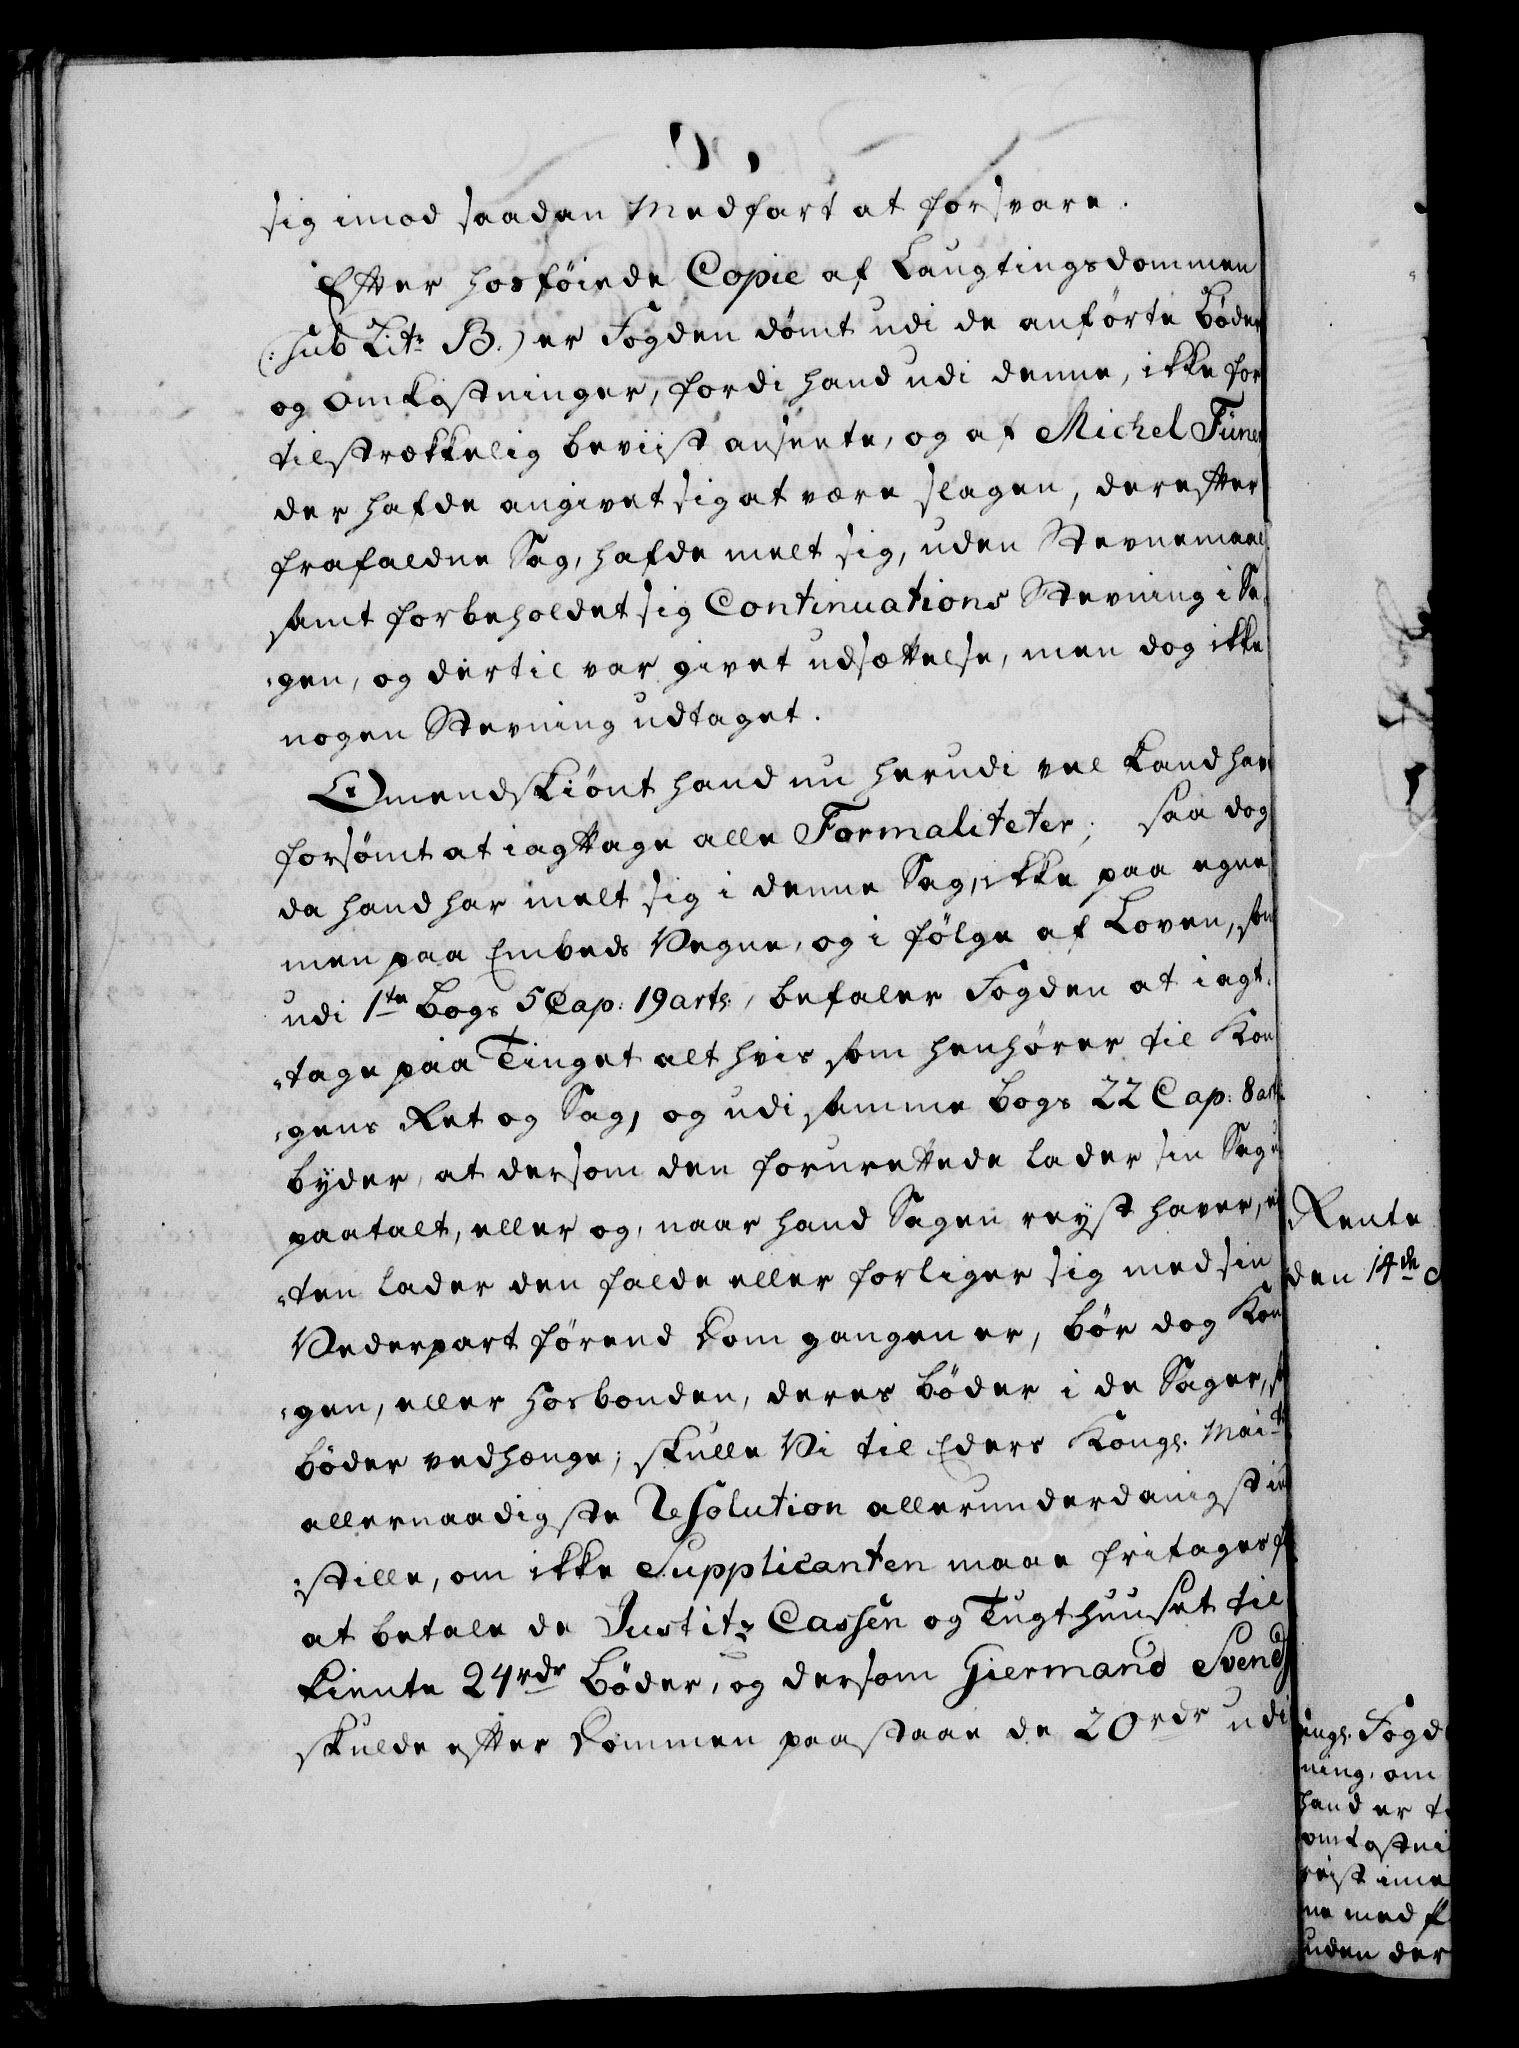 sig imod saadan Medfart at forsvare.
Efter hosföiede Copie af Laugtingsdommen
(: sub Litr B.) er Fogden dömt udi de anförte Böder
og Omkostninger, fordi hand udi denne, ikke for
tilstrækkelig beviist anseete, og af Michel Füner
der hafde angivet sig at være slagen, derefter
frafaldne Sag, hafde melt sig, uden Stevnemaal
samt forbeholdet sig Continuations Stevning i Sa,
"gen, og dertil var givet udsættelse, men dog ikke
nogen Stevning udtaget.
Omendskiönt hand nu herudi vel kand hav
forsömt at iagttage alle Formaliteter; saa dog
da hand har melt sig i denne Sag, ikke paa egne
men paa Embeds Vegne, og i fölge af Loven, som
udi 1te Bogs 5 Cap: 19 arts: befaler Fogden at iagt,
"tage paa Tinget alt hvis som henhörer til Kon
"gens Ret og Sag, og udi samme Bogs 22 Cap: 8 art:
byder, at dersom den forurettede lader sin Sag u
paatalt, eller og, naar hand Sagen reyst haver, en
"ten lader den falde eller forliger sig med sin
Vederpart förend Dom gangen er, bör dog Kon
"gen, eller Hosbonden, deres Böder i de Sager, so
Böder vedhænge; skulle Vi til Eders Kongl. Maits
allernaadigste Resolution allerunderdanigst in
"stille, om ikke Supplicanten maae fritages f
at betale de Justitz Cassen og Tugthuuset til
kiente 24 rdr Böder, og dersom Giermand Svends
skulde efter Dommen paastaae de 20 rdr udi
Rente
den 14de
ongl. Fogd
ning, om
hand er t
omkostni
reist ime
ne med f
uden der